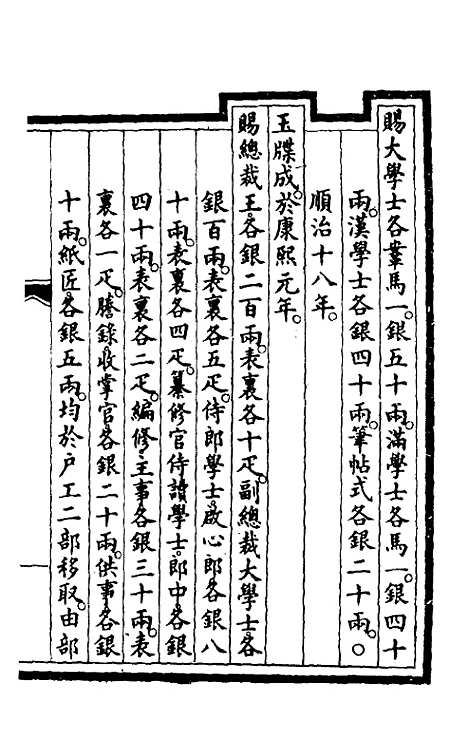 賜大學士各鞌馬一。銀五十兩。滿學士各馬一。銀四十
兩。漢學士各銀四十兩。筆帖式各銀二十兩。○
順治十八年。
玉牒成。於康熙元年。
賜總裁王。各銀二百兩。表裏各十疋。副總裁大學士。各
銀百兩。表裏各五疋。侍郎學士。啟心郎。各銀八
十兩。表裏各四疋。纂修官侍讀學士。郎中。各銀
四十兩。表裏各二疋。編修。主事。各銀三十兩。表
裏各一疋。謄錄。收掌官。各銀二十兩。供事。各銀
十兩。紙匠。各銀五兩。均於戶工二部移取。由部